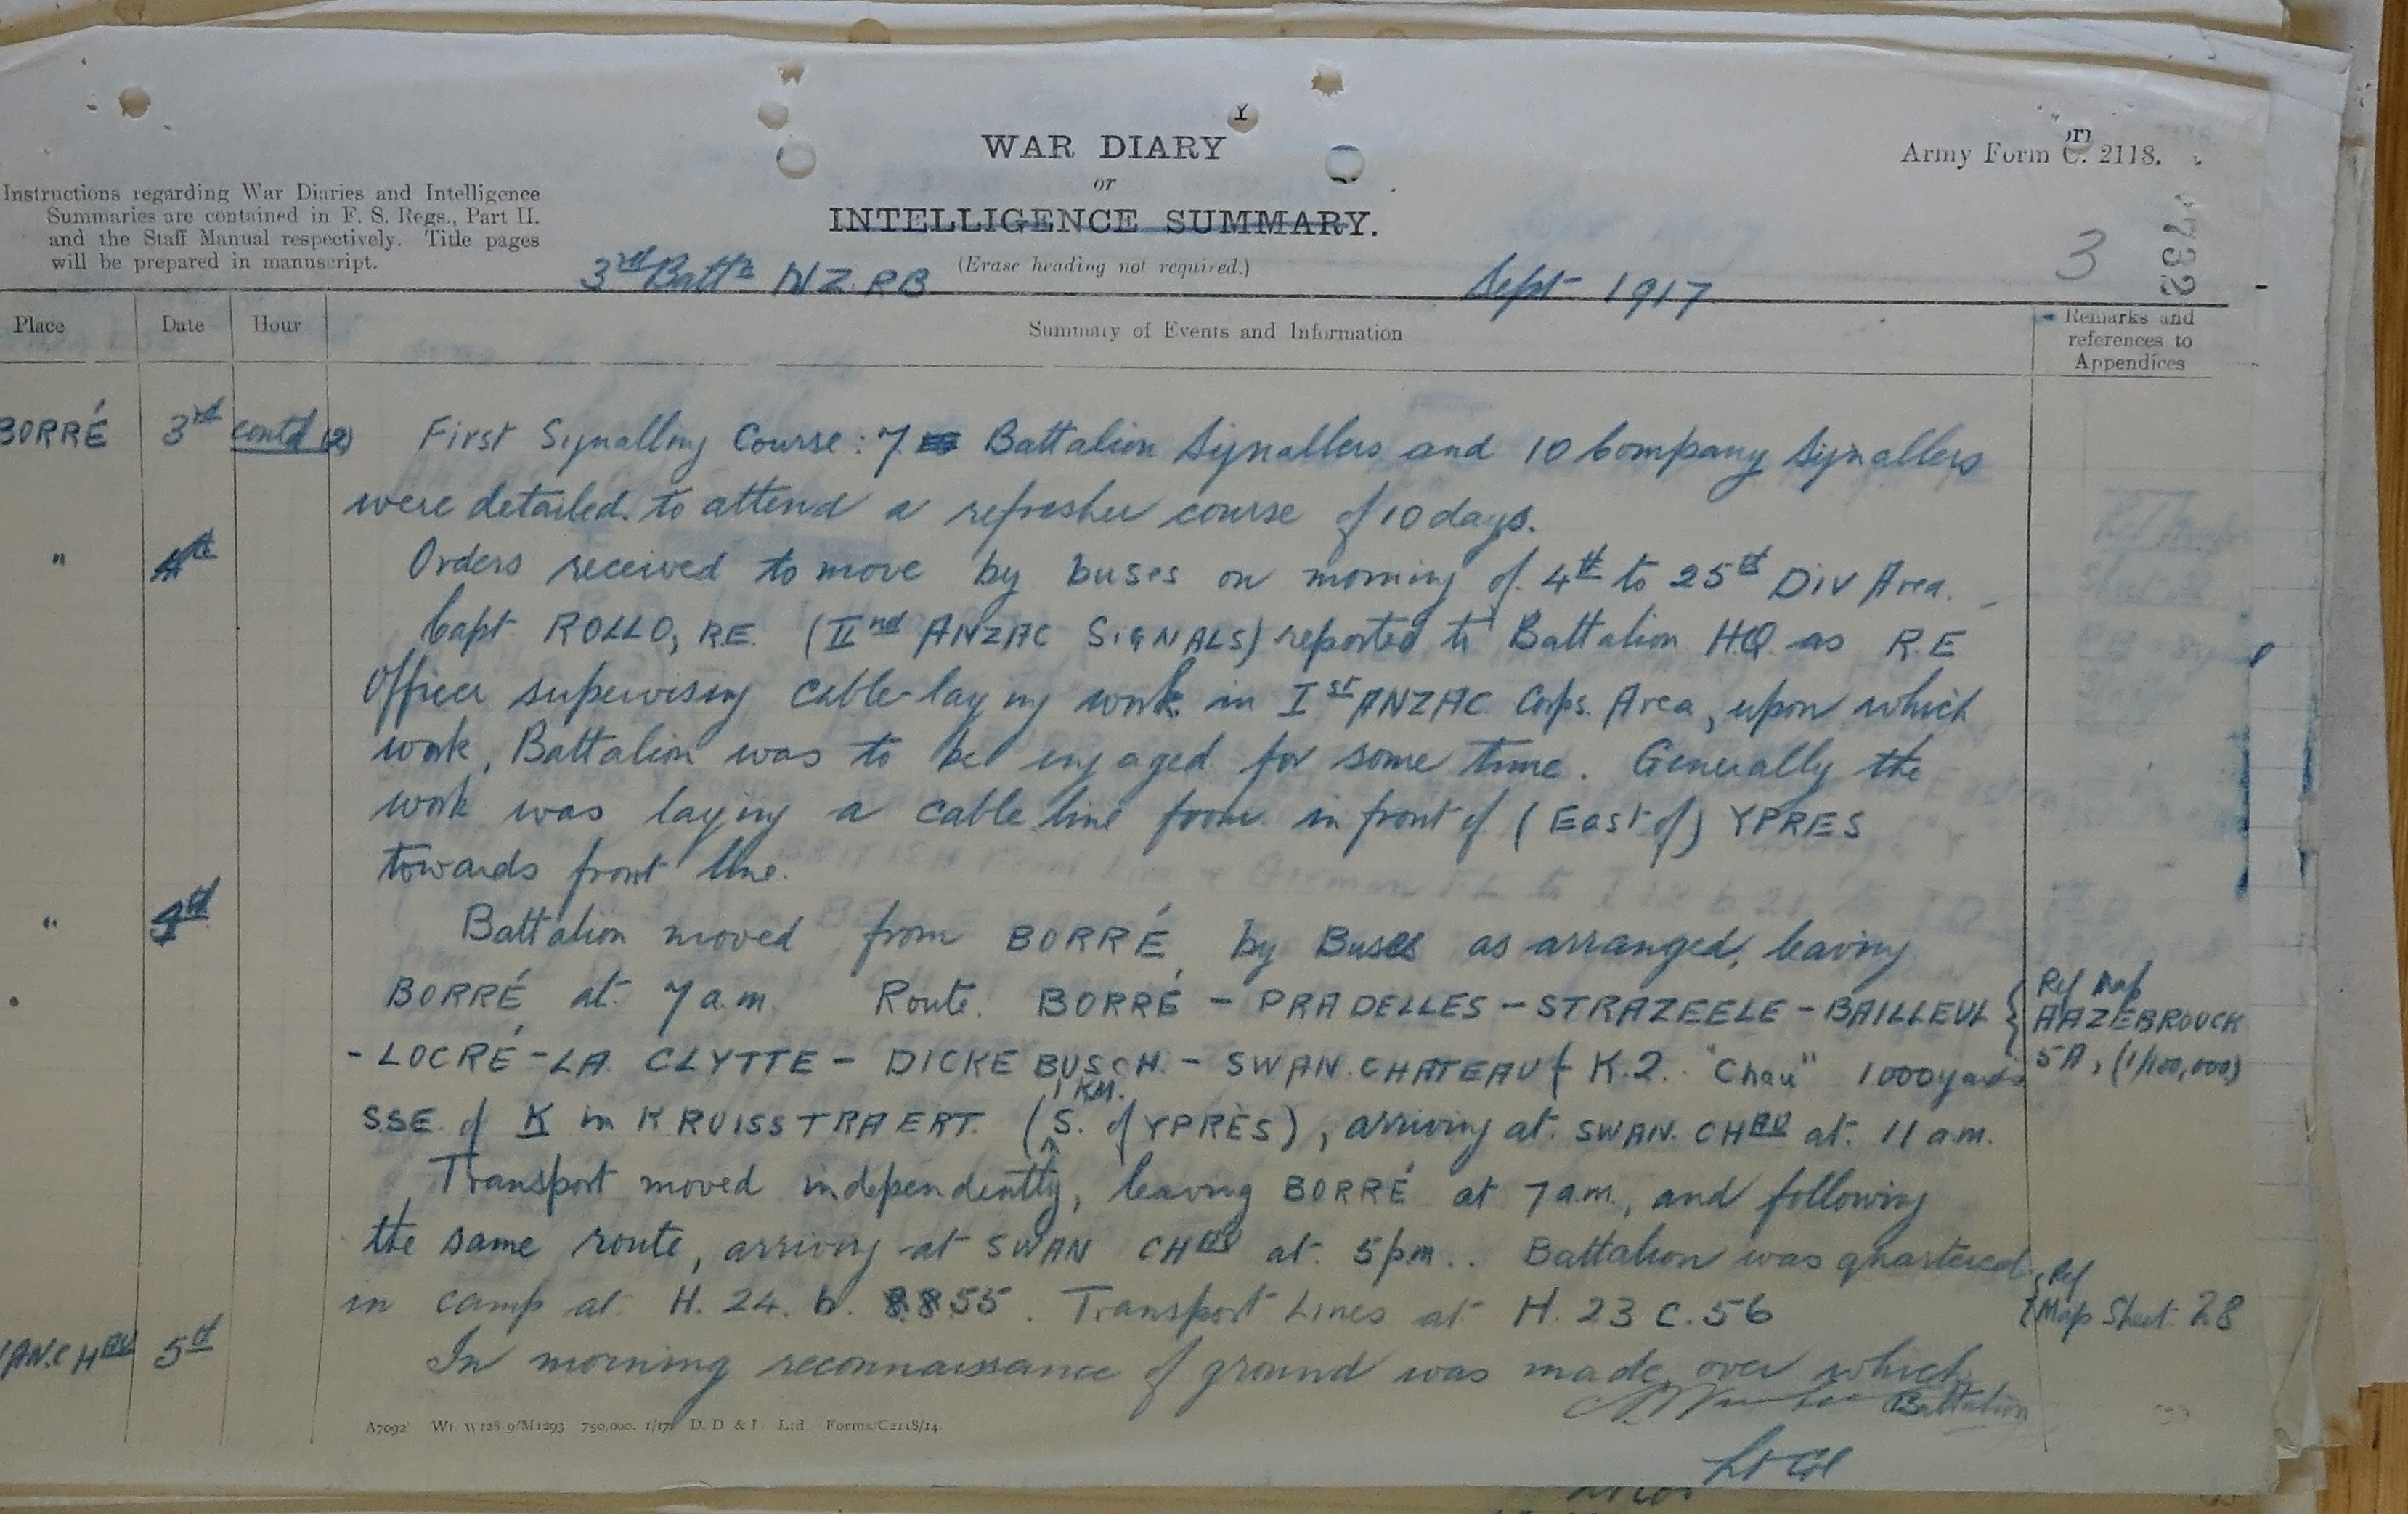 WAR DIARY
or
INTELLIGENCE SUMMARY.
(Erase heading not required.)
Army Form C. 2118.
Instructions regarding War Diaries and Intelligence
Summaries are contained in F. S. Regs., Part II.
and the Staff Manual respectively. Title pages
will be prepared in manuscript.
3rd Battn NZ RB
Sept 1917
3
732
Place Date Hour Summary of Events and Information Remarks and references to Appendices
BORRÉ 3rd contd (2) First Signalling Course: 7 Battalion Signallers and 10 Company Signallers
were detailed to attend a refresher course of 10 days.
" 4th Orders received to move by buses on morning of 4th to 25th Div Area.
Capt ROLLO, R.E. (IInd ANZAC SIGNALS) reported to Battalion HQ as R.E
Officer supervising cable-laying work in Ist ANZAC Corps Area, upon which
work, Battalion was to be engaged for some time. Generally the
work was laying a cable line from in front of (East of) YPRES
towards front line.
" 4th Battalion moved from BORRÉ by Buses as arranged, leaving
BORRÉ at 7 a.m. Route. BORRÉ - PRADELLES - STRAZEELE - BAILLEUL
Ref Map
HAZEBROUCK
5A, (1/100,000)
- LOCRÉ - LA CLYTTE - DICKEBUSCH - SWAN CHATEAU K.2. "Chau" 1000 yards
SSE. of K in KRUISSTRAERT. (1 KM. S. of YPRÈS), arriving at SWAN. CHAU at 11 a.m.
Transport moved independently, leaving BORRÉ at 7 a.m., and following
the same route, arriving at SWAN CHAU at 5 p.m.. Battalion was quartered
in camp at H. 24. b. 55. Transport Lines at H. 23 C. 56
Ref
Map Sheet 28
5th In morning reconnaissance of ground was made over which
Battalion
Lt Col
A7092 Wt. W128 9/M1293 750,000. 1/17 D. D & L. Ltd Forms/C2118/14.